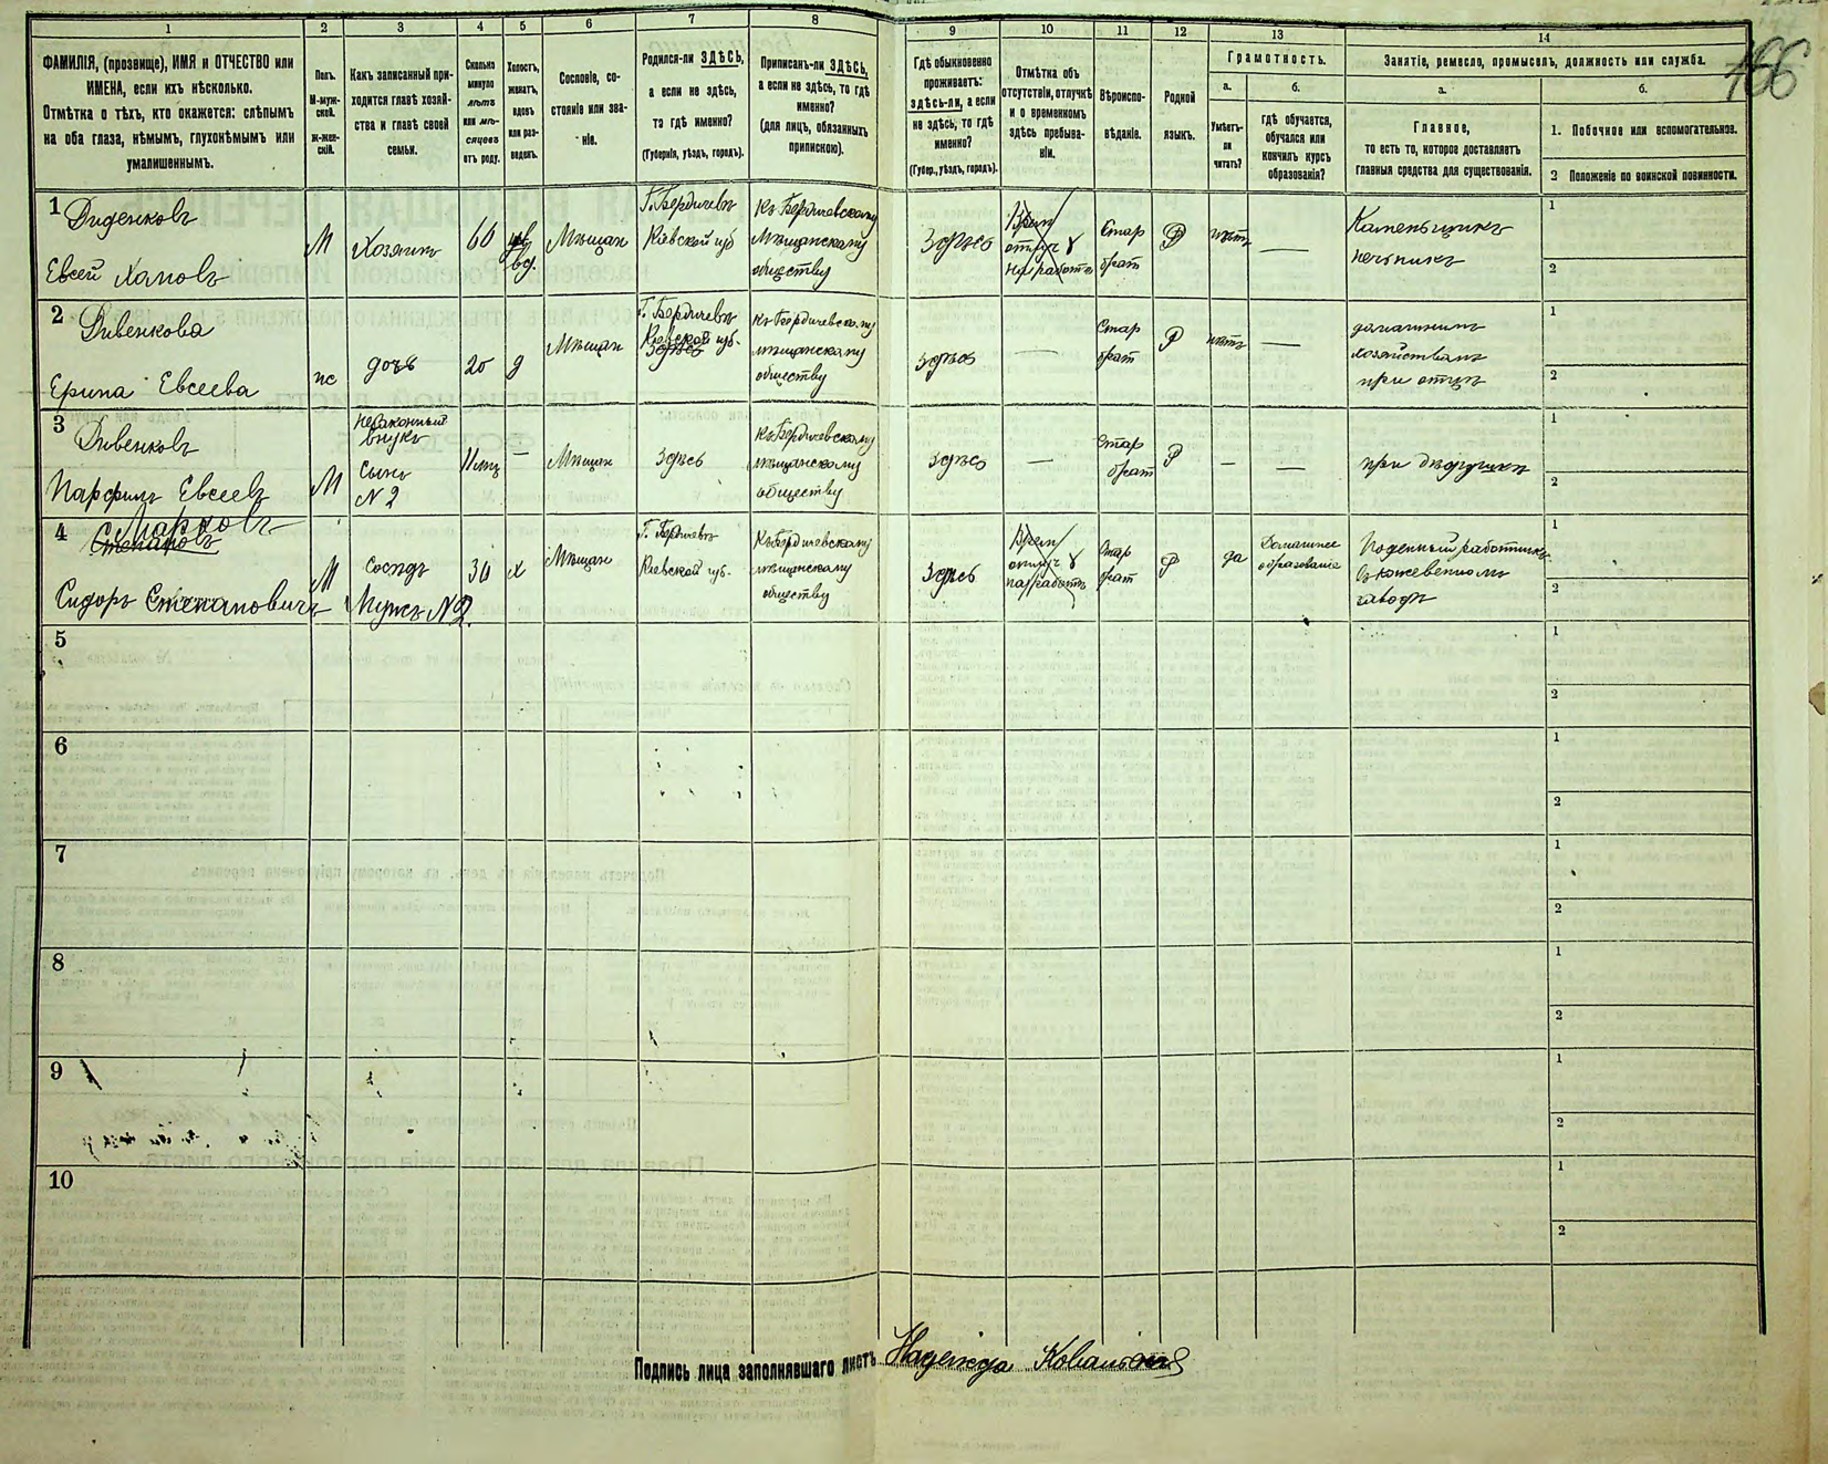 166
1 2 3 4 5 6 7 8 9 10 11 12 13 14
ФАМИЛІЯ, (прозвище), ИМЯ и ОТЧЕСТВО или
ИМЕНА, если ихъ нѣсколько.
Отмѣтка о тѣхъ, кто окажется: слѣпымъ
на оба глаза, нѣмымъ, глухонѣмымъ или
умалишеннымъ.
Полъ.
М-муж-
ской.
Ж-жен-
скій.
Какъ записанный при-
ходится главѣ хозяй-
ства и главѣ своей
семьи.
Сколько
минуло
лѣтъ
или мѣ-
сяцевъ
отъ роду.
Холостъ,
женатъ,
вдовъ
или раз-
веденъ.
Сословіе, со-
стояніе или зва-
ніе.
Родился-ли ЗДѢСЬ,
а если не здѣсь,
то гдѣ именно?
(Губернія, уѣздъ, городъ).
Приписанъ-ли ЗДѢСЬ,
а если не здѣсь, то гдѣ
именно?
(для лицъ, обязанныхъ
припискою).
Гдѣ обыкновенно
проживаетъ:
здѣсь-ли, а если
не здѣсь, то гдѣ
именно?
(Губер., уѣздъ, городъ).
Отмѣтка объ
отсутствіи, отлучкѣ
и о временномъ
здѣсь пребыва-
ніи.
Вѣроиспо-
вѣданіе.
Родной
языкъ.
Грамотность.
а.
Умѣетъ-
ли
читать?
б.
гдѣ обучается,
обучался или
кончилъ курсъ
образованія?
Занятіе, ремесло, промыселъ, должность или служба.
а.
Главное,
то есть то, которое доставляетъ
главныя средства для существованія.
б.
1. Побочное или вспомогательное.
2 Положеніе по воинской повинности.
1 Диденковъ
Евсей
М
Хозяинъ
60
вд.
Мѣщан
Г. Бердичевъ
Кіевской губ
Къ Бердичевскому
Мѣщанскому
обществу
Здѣсь
Стар
обрат
Р
нѣтъ
—
Каменьщикъ
печникъ
1
2
2 Дивенкова
Ерина Евсеева
ж
дочь
20
д
Мѣщан
Г. Бердичевъ
Кіевской губ.
здѣсь
Къ Бердичевскому
мѣщанскому
обществу
здѣсь
—
Стар
обрат
Р
нѣтъ
—
домашнимъ
хозяйствомъ
при отцѣ
1
2
3 Дивенковъ
Парфилъ Евсеевъ
М
Незаконный
внукъ
Сынъ
№ 2
11 мѣ
—
Мѣщан
Здѣсь
Къ Бердичевскому
мѣщанскому
обществу
Здѣсь
—
Стар
обрат
Р
—
—
при дѣдушкѣ
1
2
4 Марковъ
Степановъ
Сидоръ Степановичъ
М
Сосѣдъ
Мужъ № 2.
30
х
Мѣщан
Г. Бердичевъ
Кіевской губ.
Къ Бердичевскому
мѣщанскому
обществу
Здѣсь
Стар
обрат
Р
да
Домашнее
образованіе
Поденный работникъ
въ кожевенномъ
заводѣ
1
2
5
1
2
6
1
2
7
1
2
8
1
2
9
1
2
10
1
2
Подпись лица заполнявшаго листъ Надежда